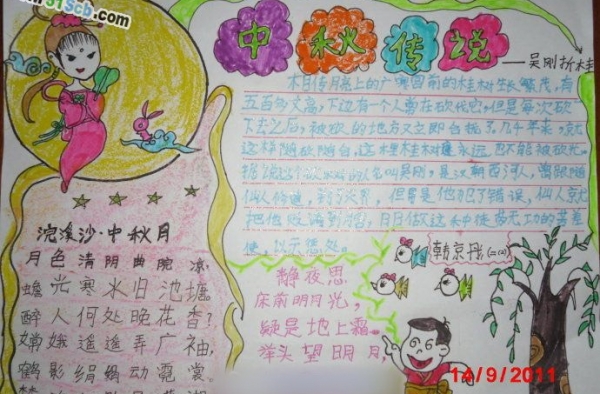 51Scb.com
中秋传说
——吴刚折桂
相传月亮上的广寒宫前的桂树生长繁茂,有
五百多丈高,下边有一个人常在砍伐它,但是每次砍
下去之后,被砍的地方又立即合拢了。几千年来,就
这样随砍随合,这棵桂树永远也不能被砍光。
据说这个砍树的人名叫吴刚,是汉朝西河人,曾跟随
仙人修道,到了天界,但是他犯了错误,仙人就
把他贬谪到 日日做这种徒劳无功的苦差
使,以示惩处。
浣溪沙·中秋月
月色清阴曲院凉,
蟾光寒水旧池塘
醉人何处晚花香?
嫦娥遥遥弄广袖,
鹤影绢娟动霓裳
静夜思
床前明月光,
疑是地上霜。
举头望明月,
韩京彤(二(2))
14/9/2011